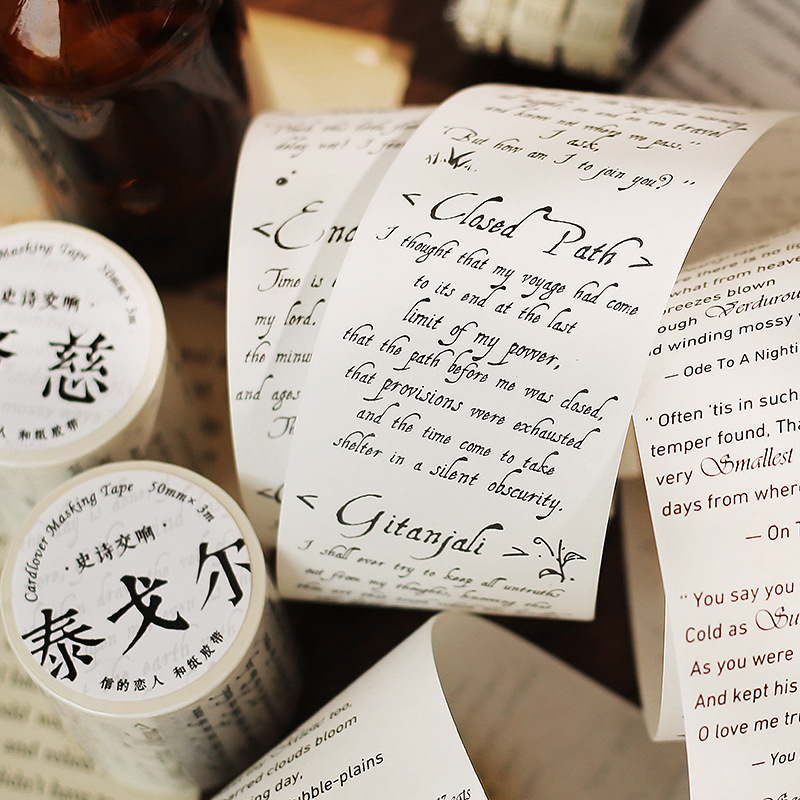 Masking Tape 50mm×3m
史诗交响·
慈
人 和纸胶带
Cardlover Masking Tape 50mm×3m
·史诗交响·
泰戈尔
信的恋人 和纸胶带
Time is
my lord.
the minu
and ages
I ask,
"But how am I to join you?"
<Closed Path>
I thought that my voyage had come
to its end at the last
limit of my power,
that the path before me was closed,
that provisions were exhausted
and the time come to take
shelter in a silent obscurity.
<Gitanjali>
I shall ever try to keep all untruths
out from my thoughts, knowing that
there is no li
what from heave
breezes blown
ough Verdurou
d winding mossy
— Ode To A Nighti
"Often 'tis in such
temper found, Tha
very Smallest
days from where
— On T
"You say you
Cold as Su
As you were
And kept his
O love me tru
— You
rred clouds bloom
ng day,
ubble-plains